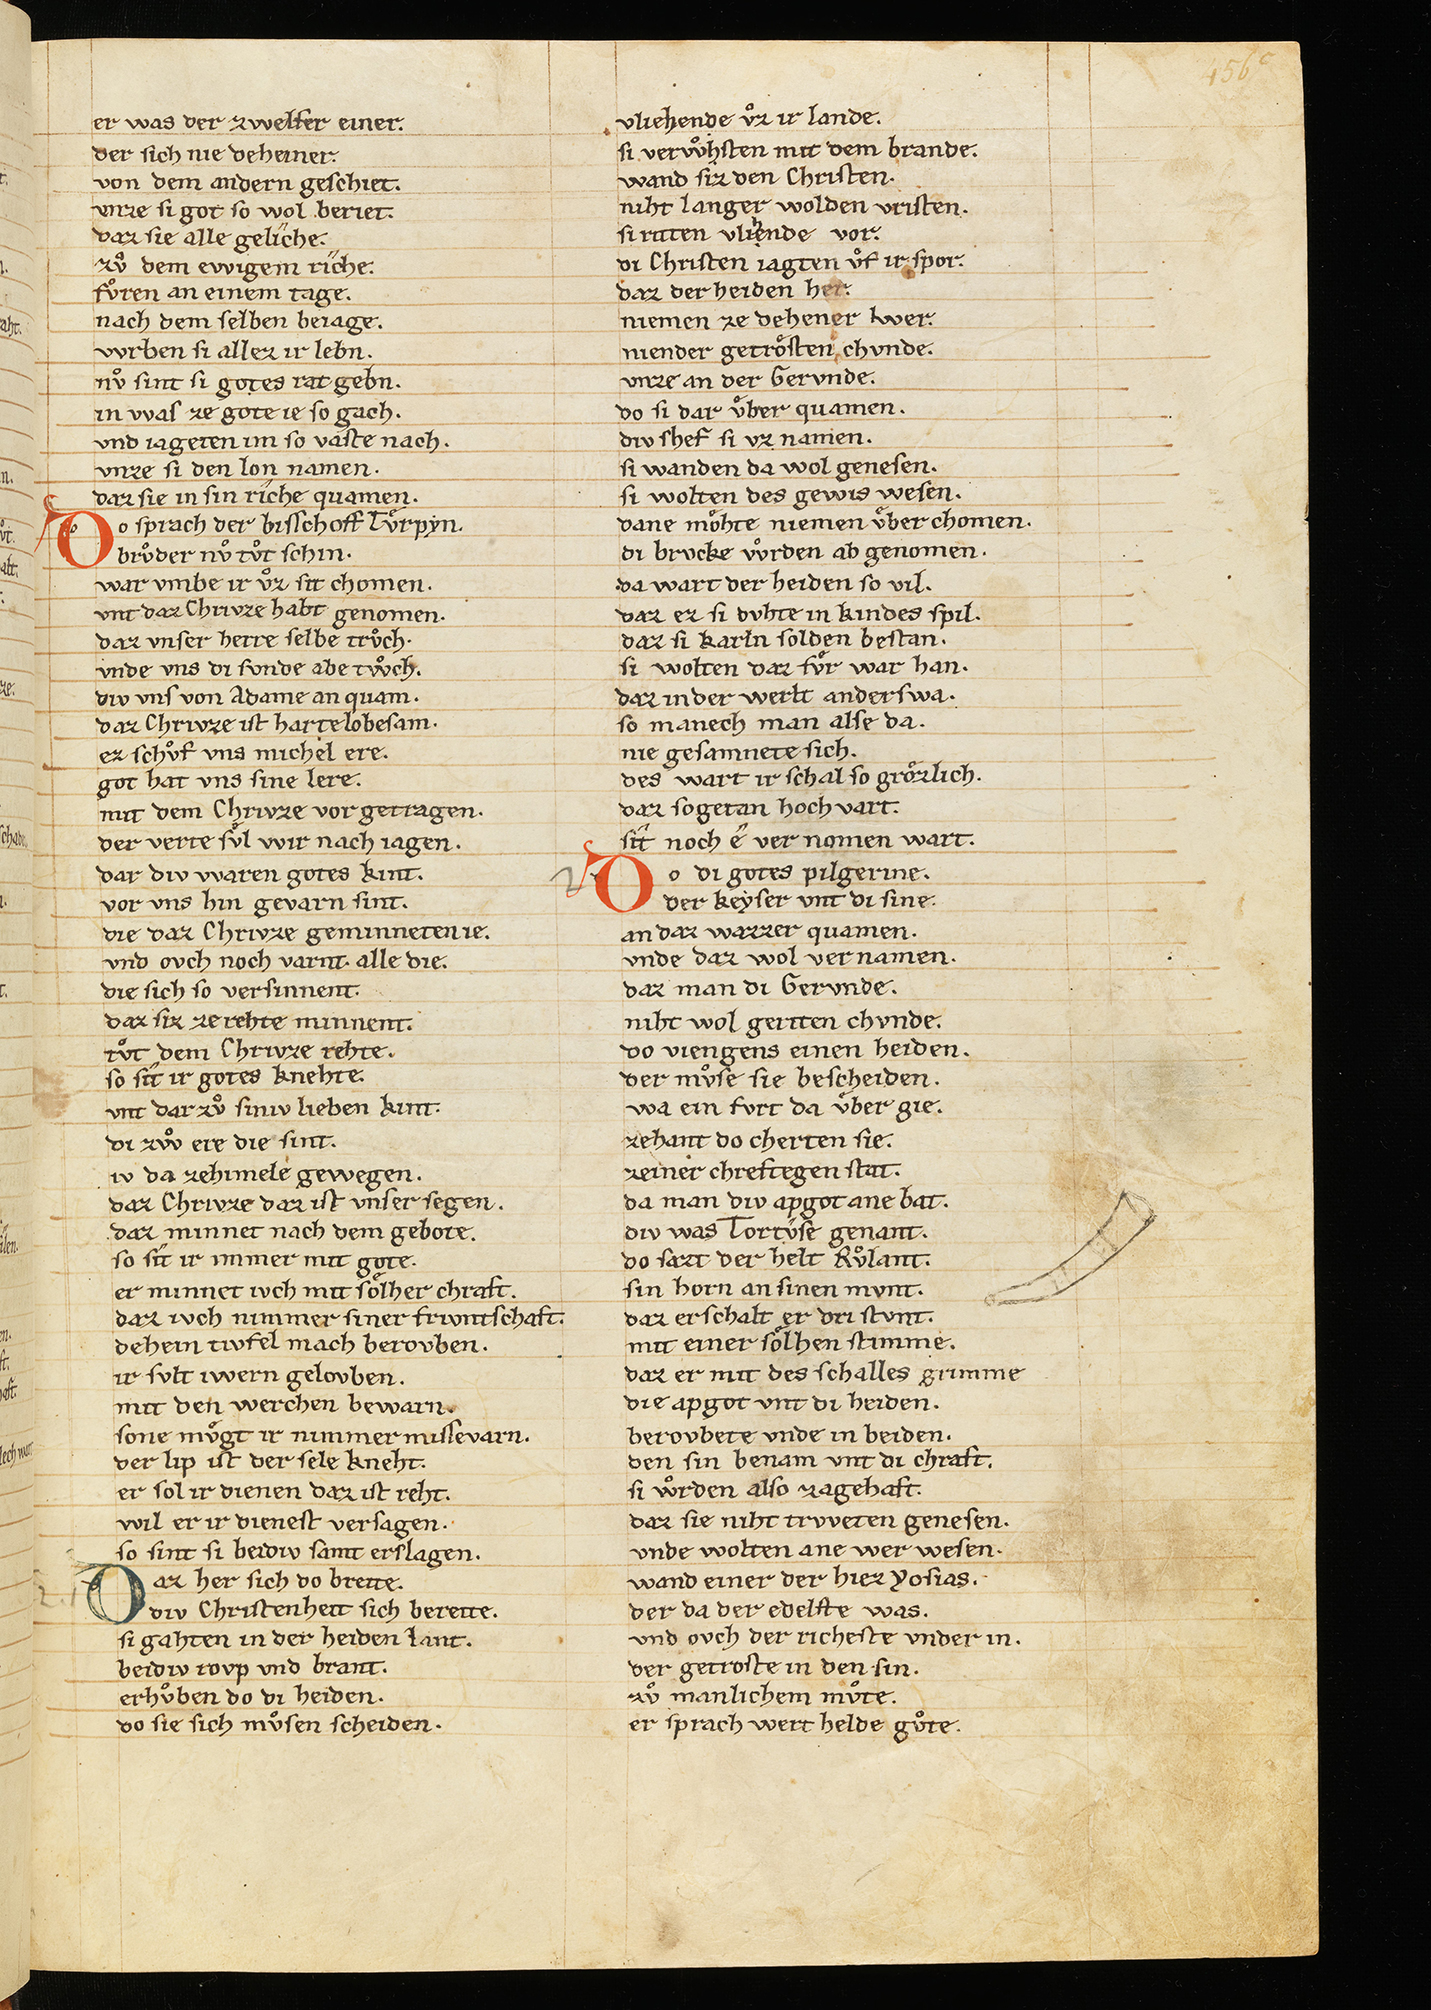 456c
er was der zwelfer einer.
der sich nie deheiner.
von dem andern geschiet.
vnze si got so wol beriet.
daz sie alle geliche.
zvͦ dem ewigem riche.
fvͦren an einem tage.
nach dem selben beiage.
wrben si allez ir lebn.
nvͦ sint si gotes rat gebn.
in was ze gote ie so gach.
vnd iageten im so vaste nach.
vnze si den lon namen.
daz sie in sin riche quamen.
Do sprach der bisschoff Tvͦrpyn.
brvͦder nvͦ tvͦt schin.
war vmbe ir vͦz sit chomen.
vnt daz Chrivze habt genomen.
daz vnser herre selbe trvͦch.
vnde vns di svnde abe twͦch.
div vns von Adame an quam.
daz Chrivze ist harte lobesam.
ez schvͦf vns michel ere.
got hat vns sine lere.
mit dem Chrivze vor getragen.
der verte svͦl wir nach iagen.
dar div waren gotes kint.
vor vns hin gevarn sint.
die daz Chrivze geminneten ie.
vnd ovch noch varnt alle die.
die sich so versinnent.
daz siz ze rehte minnent.
tvͦt dem Chrivze rehte.
so sit ir gotes knehte.
vnt dar zvͦ siniv lieben kint.
di zwͦ ere die sint.
iv da zehimele gewegen.
daz Chrivze daz ist vnser segen.
daz minnet nach dem gebote.
so sit ir immer mit gote.
er minnet ivch mit soͤlher chraft.
daz ivch nimmer siner frivntschaft.
dehein tivfel mach berovben.
ir svlt iwern gelovben.
mit den werchen bewarn.
sone mvͦgt ir nimmer missevarn.
der lip ist der sele kneht.
er sol ir dienen daz ist reht.
wil er ir dienest versagen.
so sint si beidiv samt erslagen.
Daz her sich do breite.
div Christenheit sich bereite.
si gahten in der heiden lant.
beidiv rovp vnd brant.
erhvͦben do di heiden.
do sie sich mvͦsen scheiden.
vliehende vͦz ir lande.
si verwͦhsten mit dem brande.
wand siz den Christen.
niht langer wolden vristen.
si riten vliehnde vor.
di Christen iagten vͦf ir spor.
daz der heiden her.
niemen ze dehener wer.
niender getroͤsten chvnde.
vnze an der Gervnde.
do si dar vͤber quamen.
div shef si vz namen.
si wanden da wol genesen.
si wolten des gewis wesen.
dane moͤhte niemen vͤber chomen.
di brvcke vͦrden ab genomen.
da wart der heiden so vil.
daz ez si dvhte in kindes spil.
daz si karln solden bestan.
si wolten daz fvͤr war han.
daz in der werlt anderswa.
so manech man alse da.
nie gesamnete sich.
des wart ir schal so groͤzlich.
daz sogetan hochvart.
sit noch e ver nomen wart.
Do di gotes pilgerine.
der keyser vnt di sine.
an daz wazzer quamen.
vnde daz wol vernamen.
daz man di Gervnde.
niht wol geriten chvnde.
do viengens einen heiden.
der mvͦse sie bescheiden.
wa ein fvrt da vͤber gie.
zehant do cherten sie.
zeiner chreftegen stat.
da man div apgot ane bat.
div was Tortvse genant.
do sazt der helt Rvͦlant.
sin horn an sinen mvnt.
daz erschalt er dri stvnt.
mit einer soͤlhen stimme.
daz er mit des schalles grimme
die apgot vnt di heiden.
berovbete vnde in beiden.
den sin benam vnt di chraft.
si wͦrden also zagehaft.
daz sie niht trvveten genesen.
vnde wolten ane wer wesen.
wand einer der hiez Yosias.
der da der edelste was.
vnd ovch der richeste vnder in.
der getroste in den sin.
zvͦ manlichem mvͦte.
er sprach wert helde gvͦte.